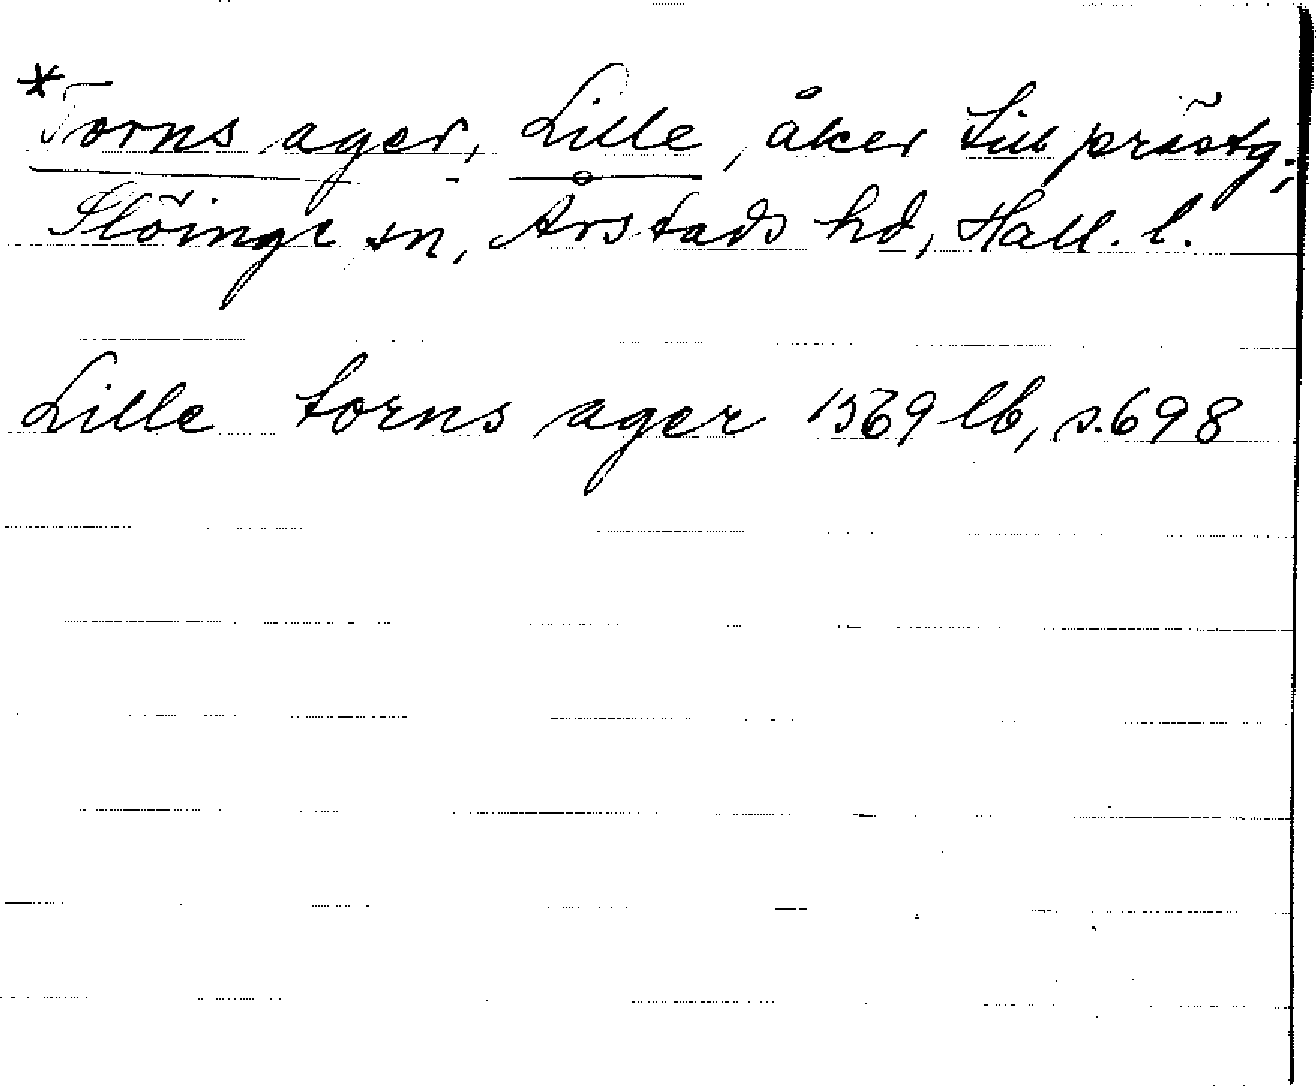 *Torns ager, Lille, åker till prästg.,
Slöinge sn, Årstads hd, Hall. l.
Lille torns ager 1569 lb, s. 698